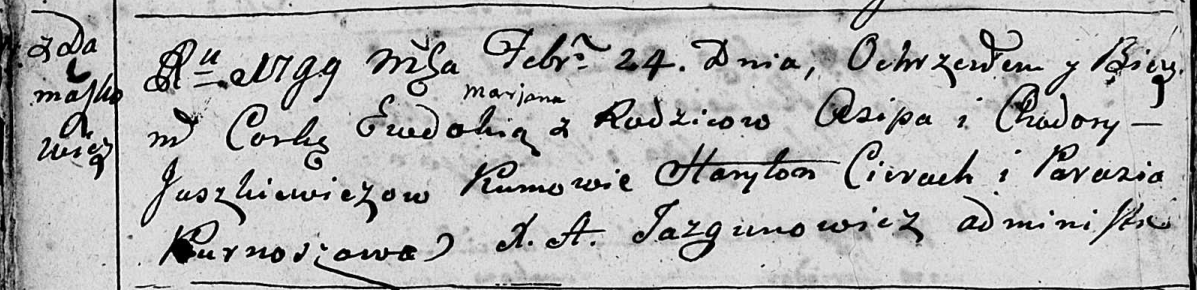 z Da
masko
wicz
Ru 1799 Mca Febr. 24. Dnia, Ochrzciłem y Bierz.
marjana
m Corkę Ewdokią z Rodzicow Osipa i Chodory —
Juszkiewiczow Kumowie Haryton Cierach i Parasia
Kurnoszowa X. A. Jazgunowicz administr